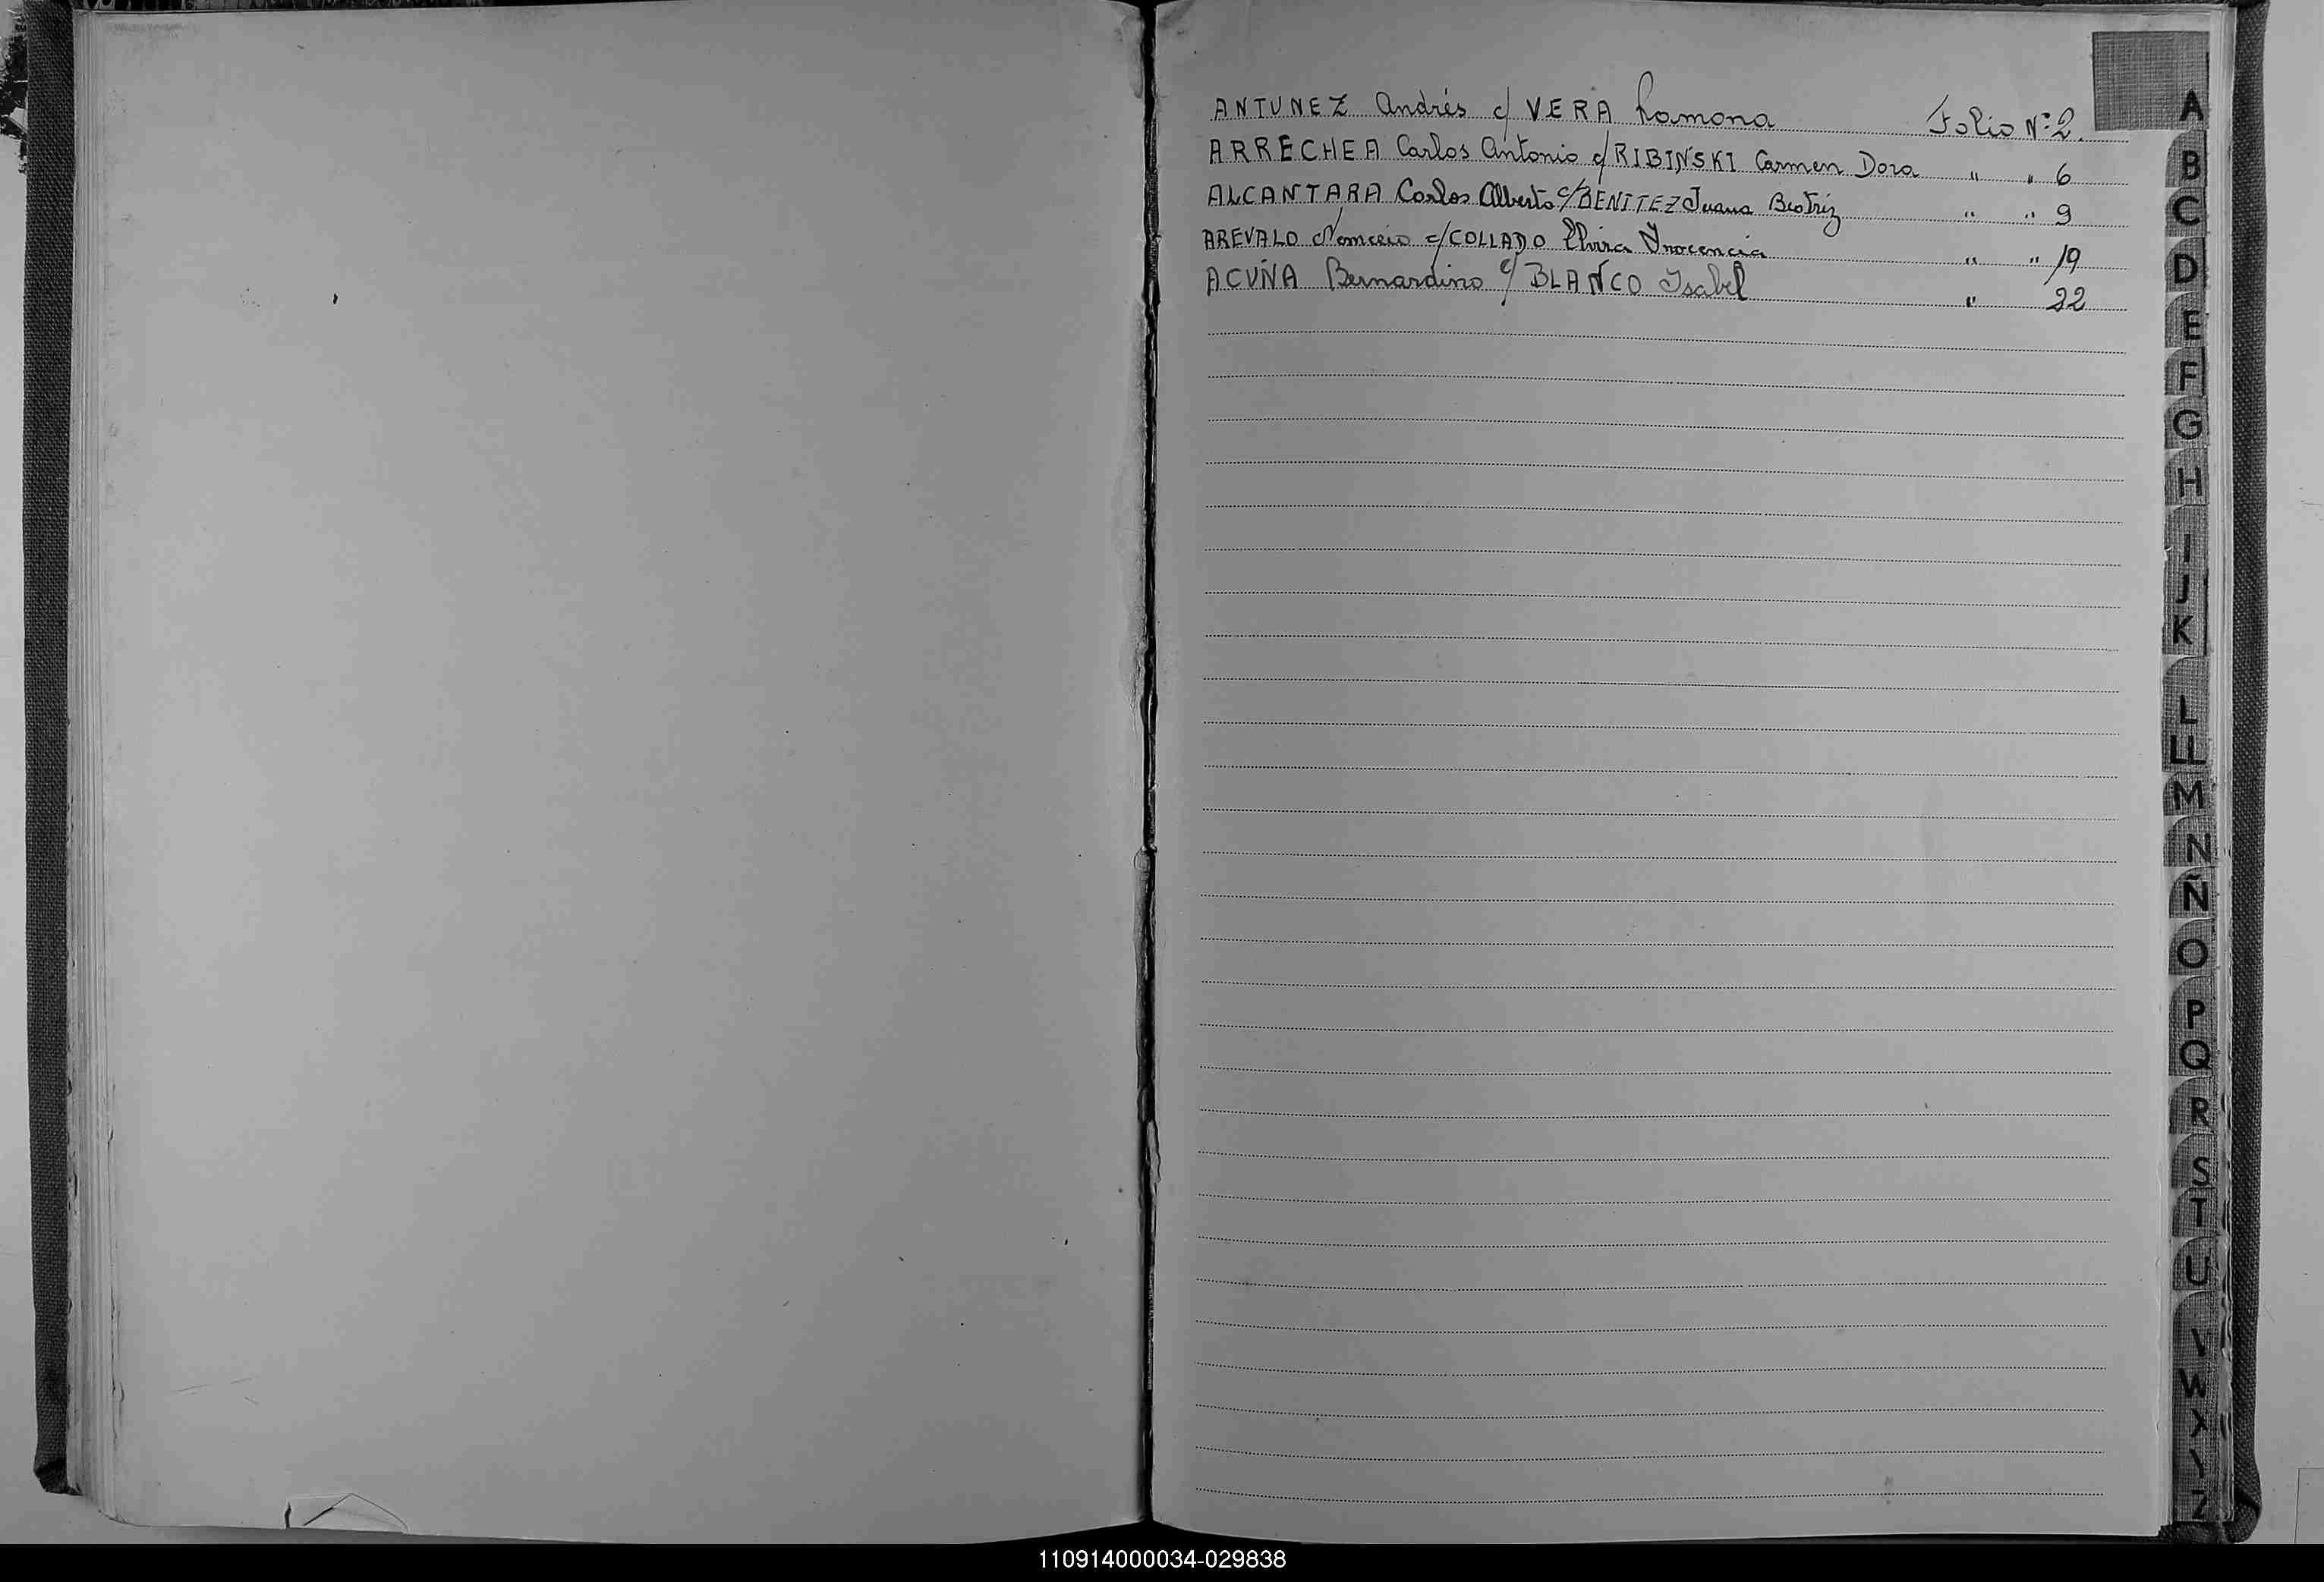 ANTUNEZ Andrés c/ VERA Ramona Folio Nº 2.
ARRECHEA Carlos Antonio c/ RIBINSKI Carmen Dora " " 6
ALCANTARA Carlos Alberto c/ BENITEZ Juana Beatriz " " 9
AREVALO c/ COLLADO Elvira Inocencia " " 19
ACUÑA Bernardino c/ BLANCO Isabel " 22
A
B
C
D
E
F
G
H
I
J
K
L
LL
M
N
Ñ
O
P
Q
R
S
T
U
W
Z
110914000034-029838